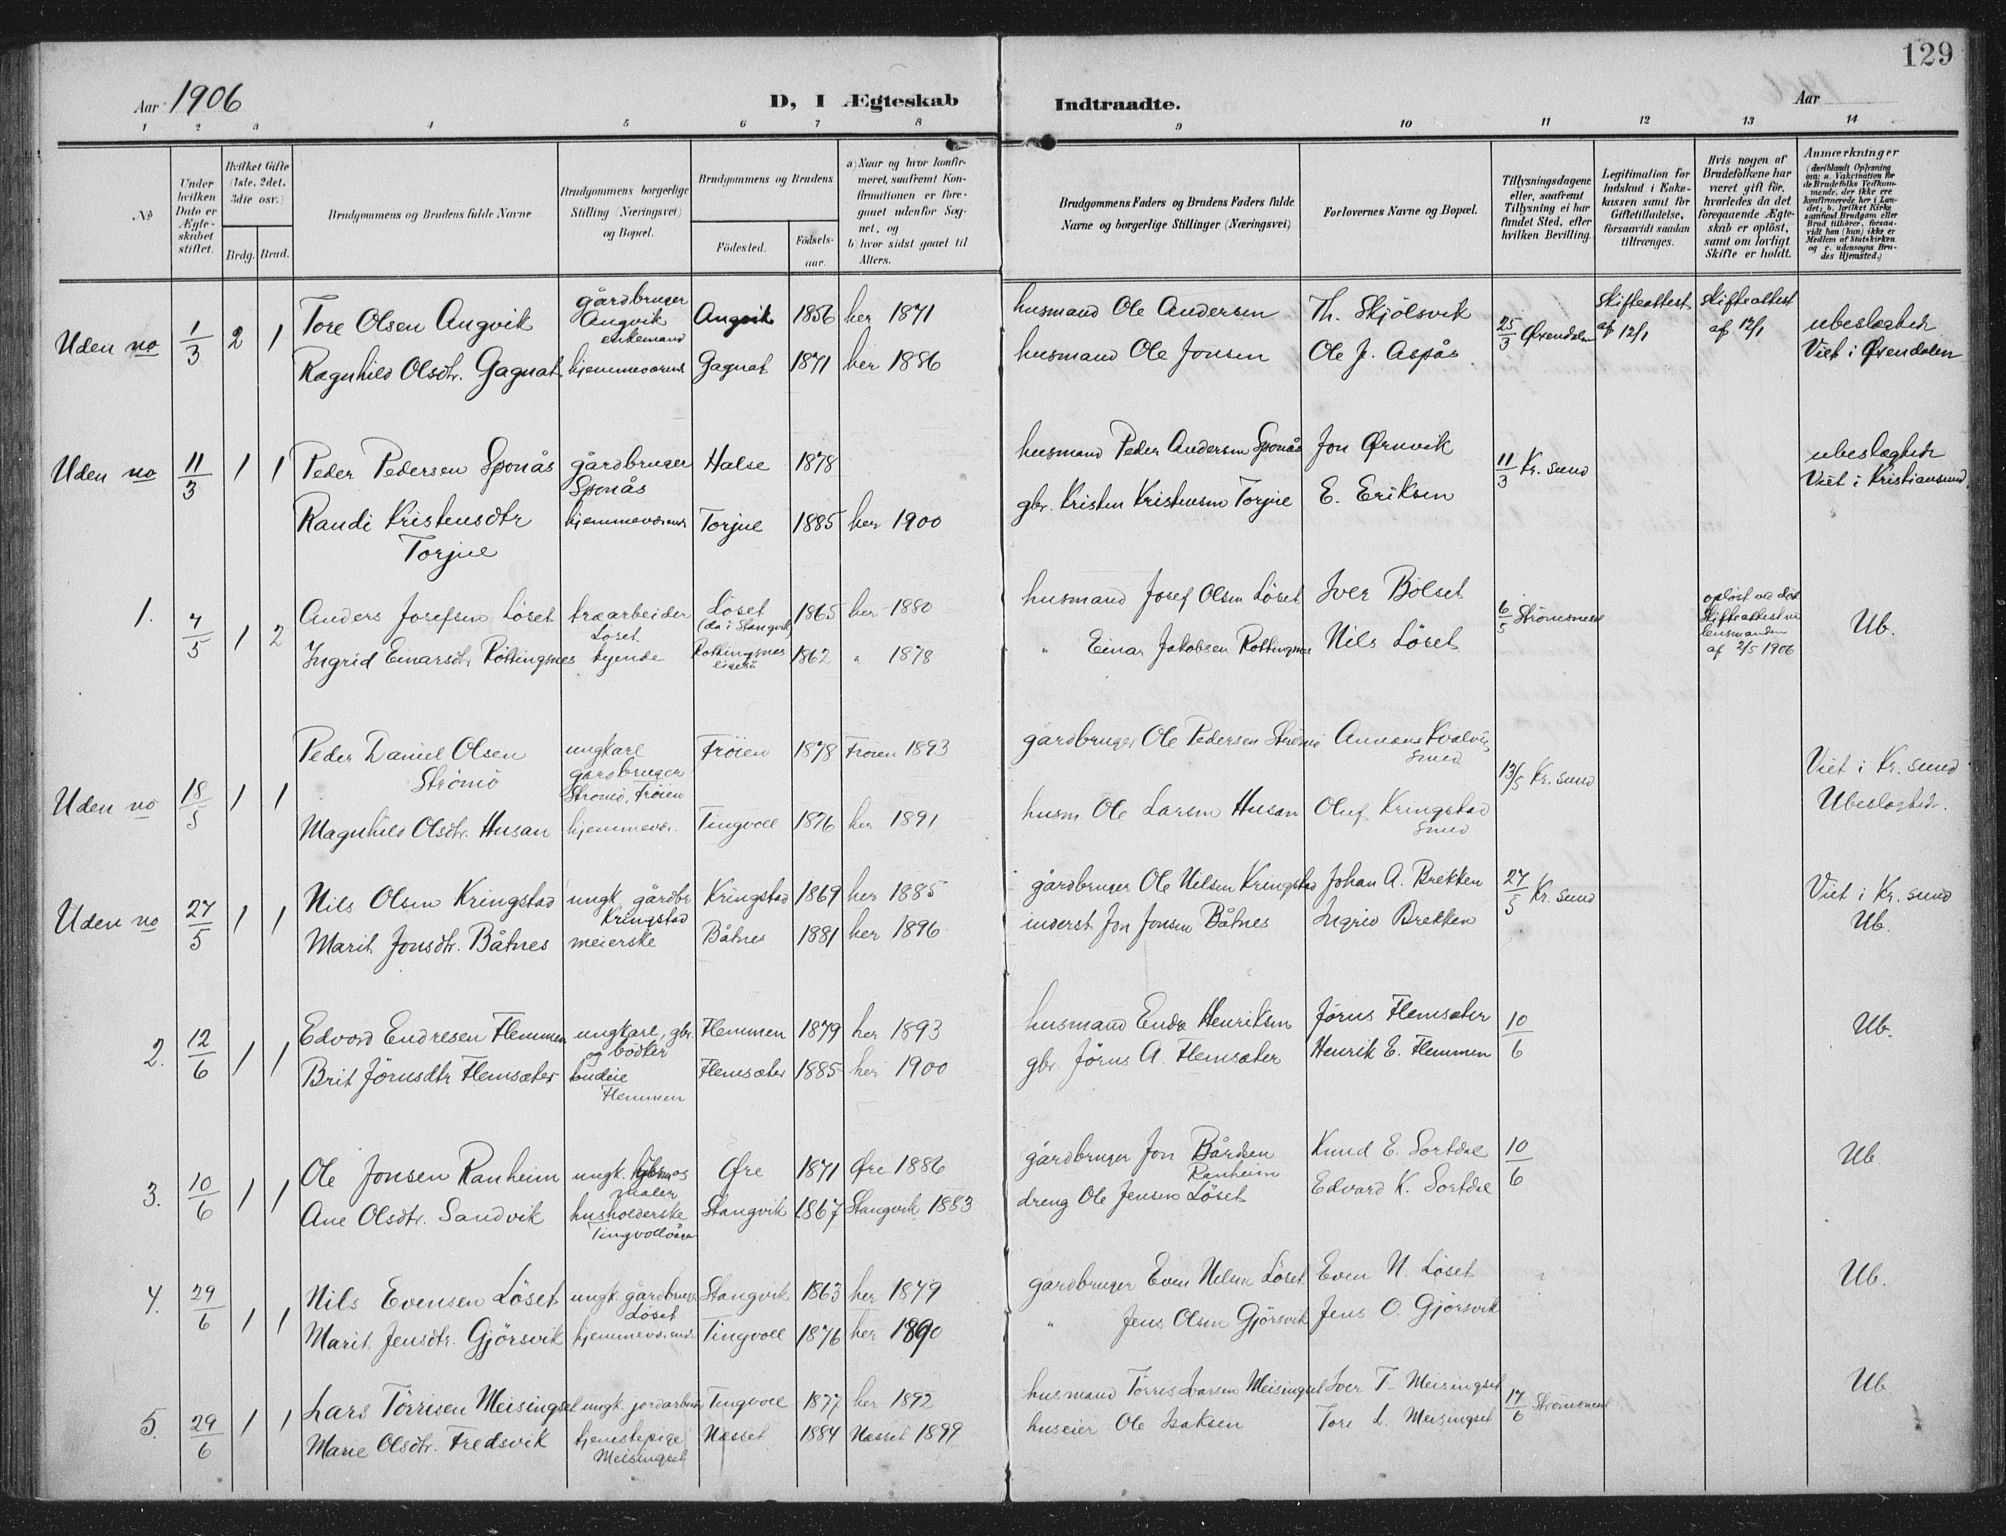 129
Aar 1906
D, I Ægteskab Indtraadte.
Aar
1 2 3 4 5 6 7 8 9 10 11 12 13 14
No
Under hvilken Dato er Ægteskabet stiftet.
Hvilket Gifte (1ste, 2det, 3die osv.)
Brdg. Brud.
Brudgommens og Brudens fulde Navne
Brudgommens borgerlige Stilling (Næringsvei) og Bopæl.
Brudgommens og Brudens
Födested.
Födselsaar.
a) Naar og hvor konfirmeret, saafremt Konfirmationen er foregaaet udenfor Sognet, og
b) hvor sidst gaaet til Alters.
Brudgommens Faders og Brudens Faders fulde Navne og borgerlige Stillinger (Næringsvei)
Forlovernes Navne og Bopæl.
Tillysningsdagene eller, saafremt Tillysning ei har fundet Sted, efter hvilken Bevilling.
Legitimation for Indskud i Enkekassen samt for Giftetilladelse, forsaavidt saadan tiltrænges.
Hvis nogen af Brudefolkene har været gift för, hvorledes da det foregaaende Ægteskab er oplöst, samt om lovligt Skifte er holdt.
Anmærkninger
Uden no 1/3 2 1 Tore Olsen Angvik gårdbruger Angvik enkemand Angvik 1856 her 1871 husmand Ole Andersen Th. Skjölsvik 25/3 Øxendalen skifteattest af 12/1 skifteattest af 12/1 ubeslægtede
Ragnhild Olsdtr. Gagnat hjemmeværende Gagnat 1871 her 1886 husmand Ole Jonsen Ole J. Aspås Viet i Øxendalen
Uden no 11/3 1 1 Peder Pedersen Sponås gårdbruger Sponås Halse 1878 husmand Peder Andersen Sponås Jon Ørnvik 11/3 Kr. sund ubeslægtede
Randi Kristensdtr Torjul hjemmeværende Torjul 1885 her 1900 gbr. Kristen Kristensen Torjul E. Eriksen Viet i Kristiansund
1. 7/5 1 2 Anders Josefsen Löset træarbeider Löset Löset (da i Stangvik) 1865 her 1880 husmand Josef Olsen Löset Iver Bölset 6/5 Strömsneset oplöst ved död Skifteattest lensmanden af 2/5 1906 Ub.
Ingrid Einarsdtr. Rottingsnes tjende Rottingsnes 1862 " 1878 " Einar Jakobsen Rottingsnes Nils Löset
Uden no 18/5 1 1 Peder Daniel Olsen Strömö ungkarl gardbruger Strömö, Fröien Fröien 1878 Fröien 1893 gardbruger Ole Pedersen Strömö 13/5 Kr. sund Viet i Kr. sund
Magnhild Olsdtr. Husan hjemmevær. Tingvoll 1876 her 1891 husm. Ole Larsen Husan Oluf Kringstad Smed Ubeslægtede.
Uden no 27/5 1 1 Nils Olsen Kringstad ungk. gårdbr. Kringstad Kringstad 1869 her 1885 gårdbruger Ole Nilsen Kringstad Johan A. Brekken 27/5 Kr. sund Viet i Kr. sund
Marit Jonsdtr. Båtnes meierske Båtnes 1881 her 1896 inderst Jon Jonsen Båtnes Ingrid Brekken Ub.
2. 12/6 1 1 Edvard Endresen Flemmen ungkarl, gbr. og bödker Flemmen 1879 her 1893 husmand Endre Henriksen Jörus Flemsæter 10/6 Ub.
Brit Jörusdtr Flemsæter budeie Flemmen Flemsæter 1885 her 1900 gbr. Jörus A. Flemsæter Henrik E. Flemmen
3. 10/6 1 1 Ole Jonsen Ranheim ungk. maler Øre 1871 Øre 1886 gårdbruger Jon Bårdsen Ranheim Knud E. Sortdal 10/6 Ub.
Ane Olsdtr. Sandvik husholderske Stangvik 1867 Stangvik 1883 dreng Ole Jensen Löset Edvard K. Sortdal
4. 29/6 1 1 Nils Evensen Löset ungk. gårdbruger Löset Stangvik 1863 her 1879 gårdbruger Even Nilsen Löset Even N. Löset Ub.
Marit Jensdtr. Gjörsvik hjemmeværende Tingvoll 1876 her 1890 " Jens Olsen Gjörsvik Jens O. Gjörsvik
5. 29/6 1 1 Lars Törrisen Meisingset ungk. jordarbeider Tingvoll 1877 her 1892 husmand Törres Larsen Meisingset Iver T. Meisingset 17/6 Strömsneset Ub
Marie Olsdtr. Fredsvik tjenestepige Meisingset Nesset 1884 Nesset 1899 huseier Ole Isaksen Tore L. Meisingset